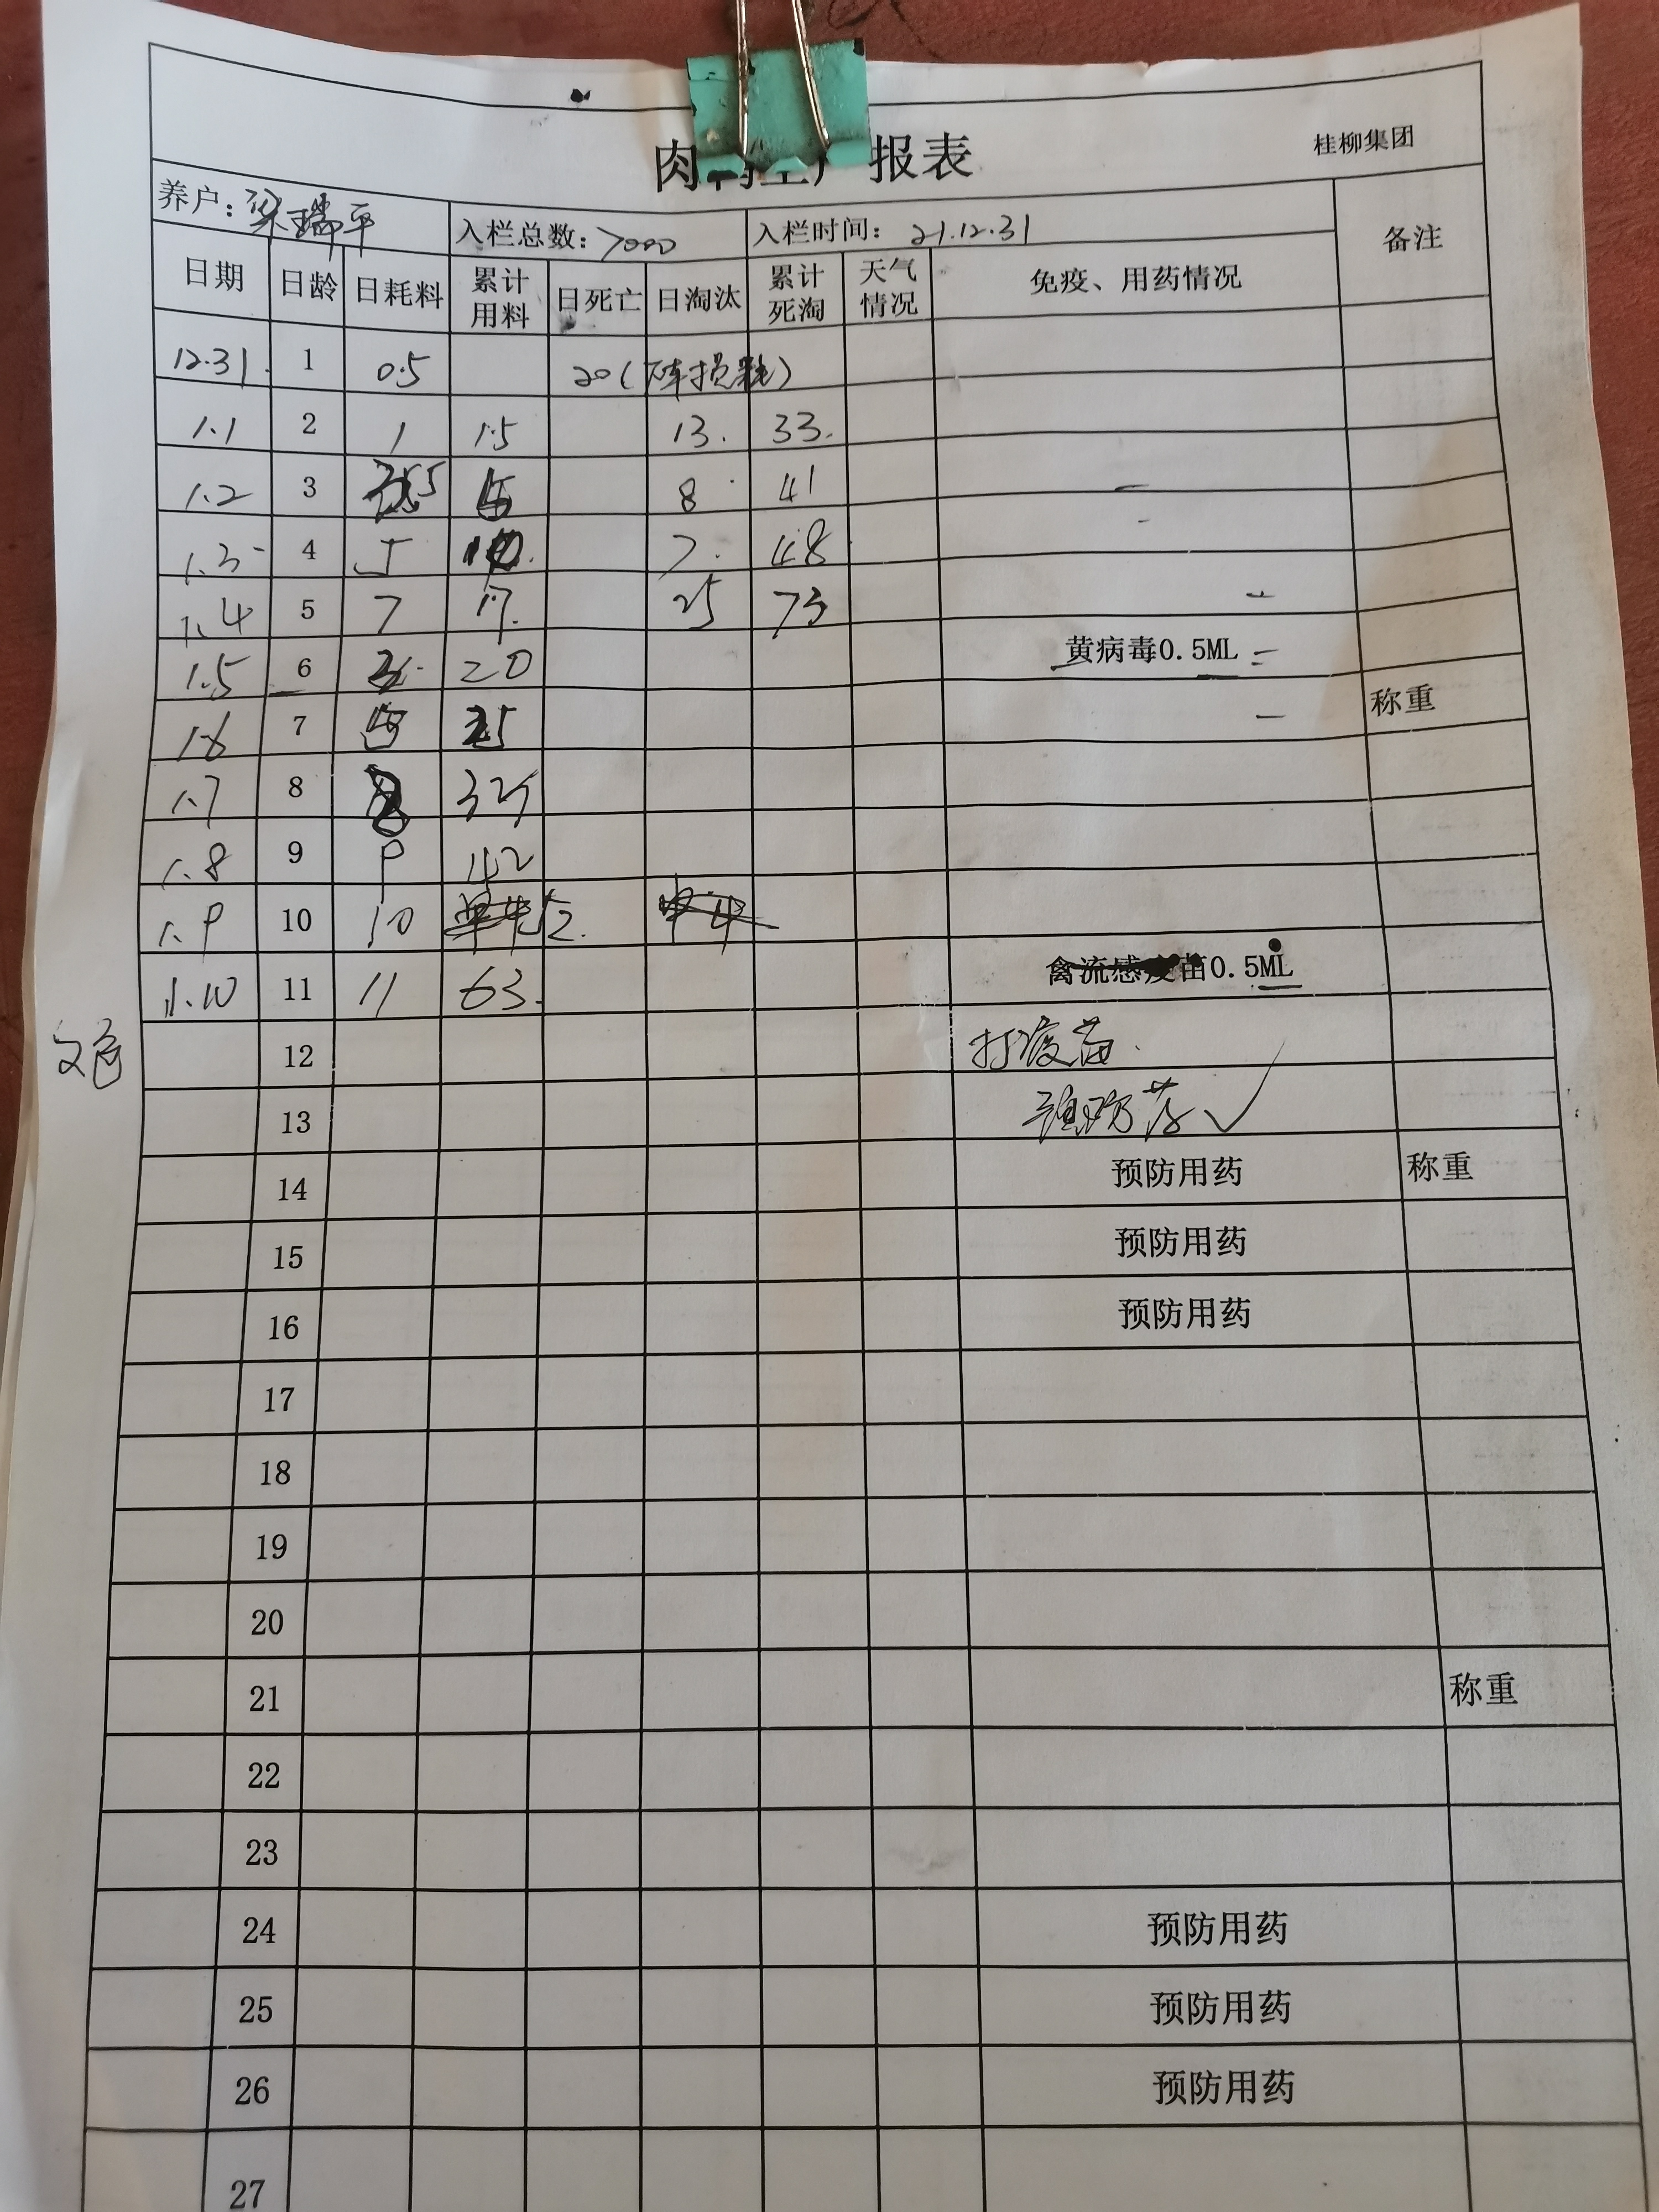 肉 报表 桂柳集团
养户: 梁瑞平 入栏总数: 7000 入栏时间: 21.12.31 备注
日期 日龄 日耗料 累计用料 日死亡 日淘汰 累计死淘 天气情况 免疫、用药情况
12.31 1 0.5 20(车损耗)
1.1 2 1 1.5 13. 33.
1.2 3 5 8 41
1.3 4 5 10. 7. 48
1.4 5 7 17. 25 73
1.5 6 20 黄病毒0.5ML
1.6 7 5 25 称重
1.7 8 8
1.8 9 9 42
1.9 10 10 52.
1.10 11 11 63. 禽流感疫苗0.5ML
12 打疫苗.
13 预防药√
14 预防用药 称重
15 预防用药
16 预防用药
17
18
19
20
21 称重
22
23
24 预防用药
25 预防用药
26 预防用药
27